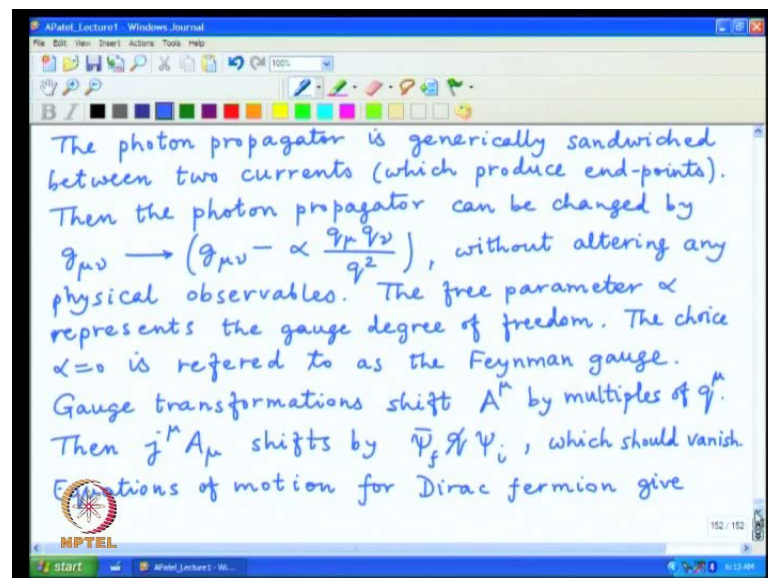 APatel_Lecture1 - Windows Journal
File Edit View Insert Actions Tools Help
100%
B I
The photon propagator is generically sandwiched
between two currents (which produce end-points).
Then the photon propagator can be changed by
g_μν ⟶ (g_μν - α q_μ q_ν / q²), without altering any
physical observables. The free parameter α
represents the gauge degree of freedom. The choice
α=0 is refered to as the Feynman gauge.
Gauge transformations shift A^μ by multiples of q^μ.
Then j^μ A_μ shifts by Ψ̄_f q̸ Ψ_i, which should vanish.
Equations of motion for Dirac fermion give
152 / 152
NPTEL
start
APatel_Lecture1 - Wi...
6:13 AM